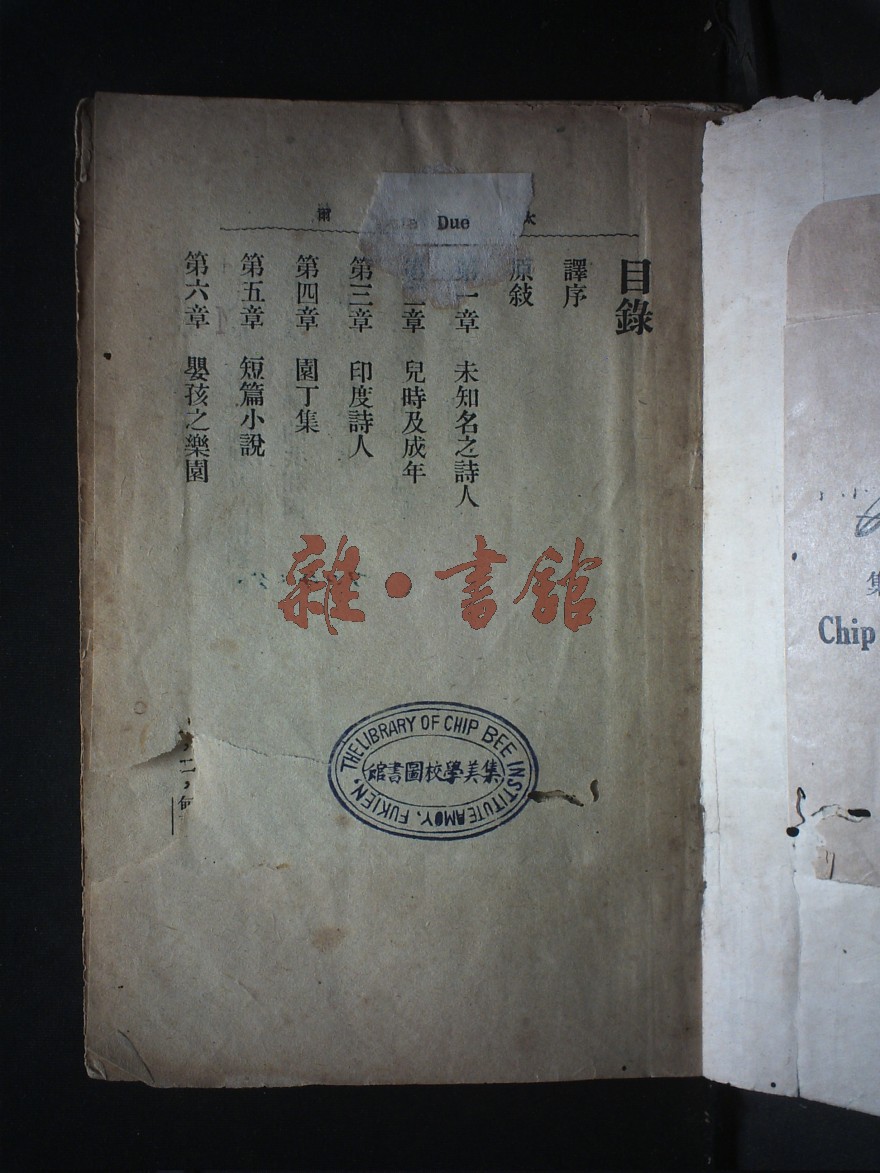 爾 Due
目錄
譯序
原敍
第一章 未知名之詩人
第二章 兒時及成年
第三章 印度詩人
第四章 園丁集
第五章 短篇小說
第六章 嬰孩之樂園
雜·書館
THE LIBRARY OF CHIP BEE INSTITUTE AMOY, FUKIEN,
集美學校圖書館
二，
集
Chip